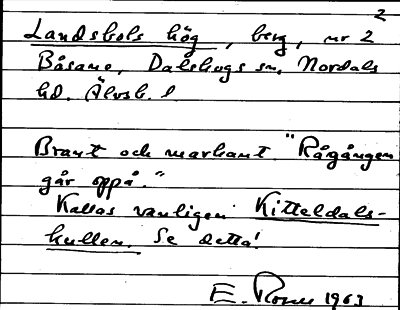 2
Landsbols hög, berg, nr 2
Båsane, Dalskogs sn, Nordals
hd. Älvsb. l
Brant och markant. "Rågången
går oppå."
Kallas vanligen Kitteldals-
kullen. Se detta!
E. Rosen 1963